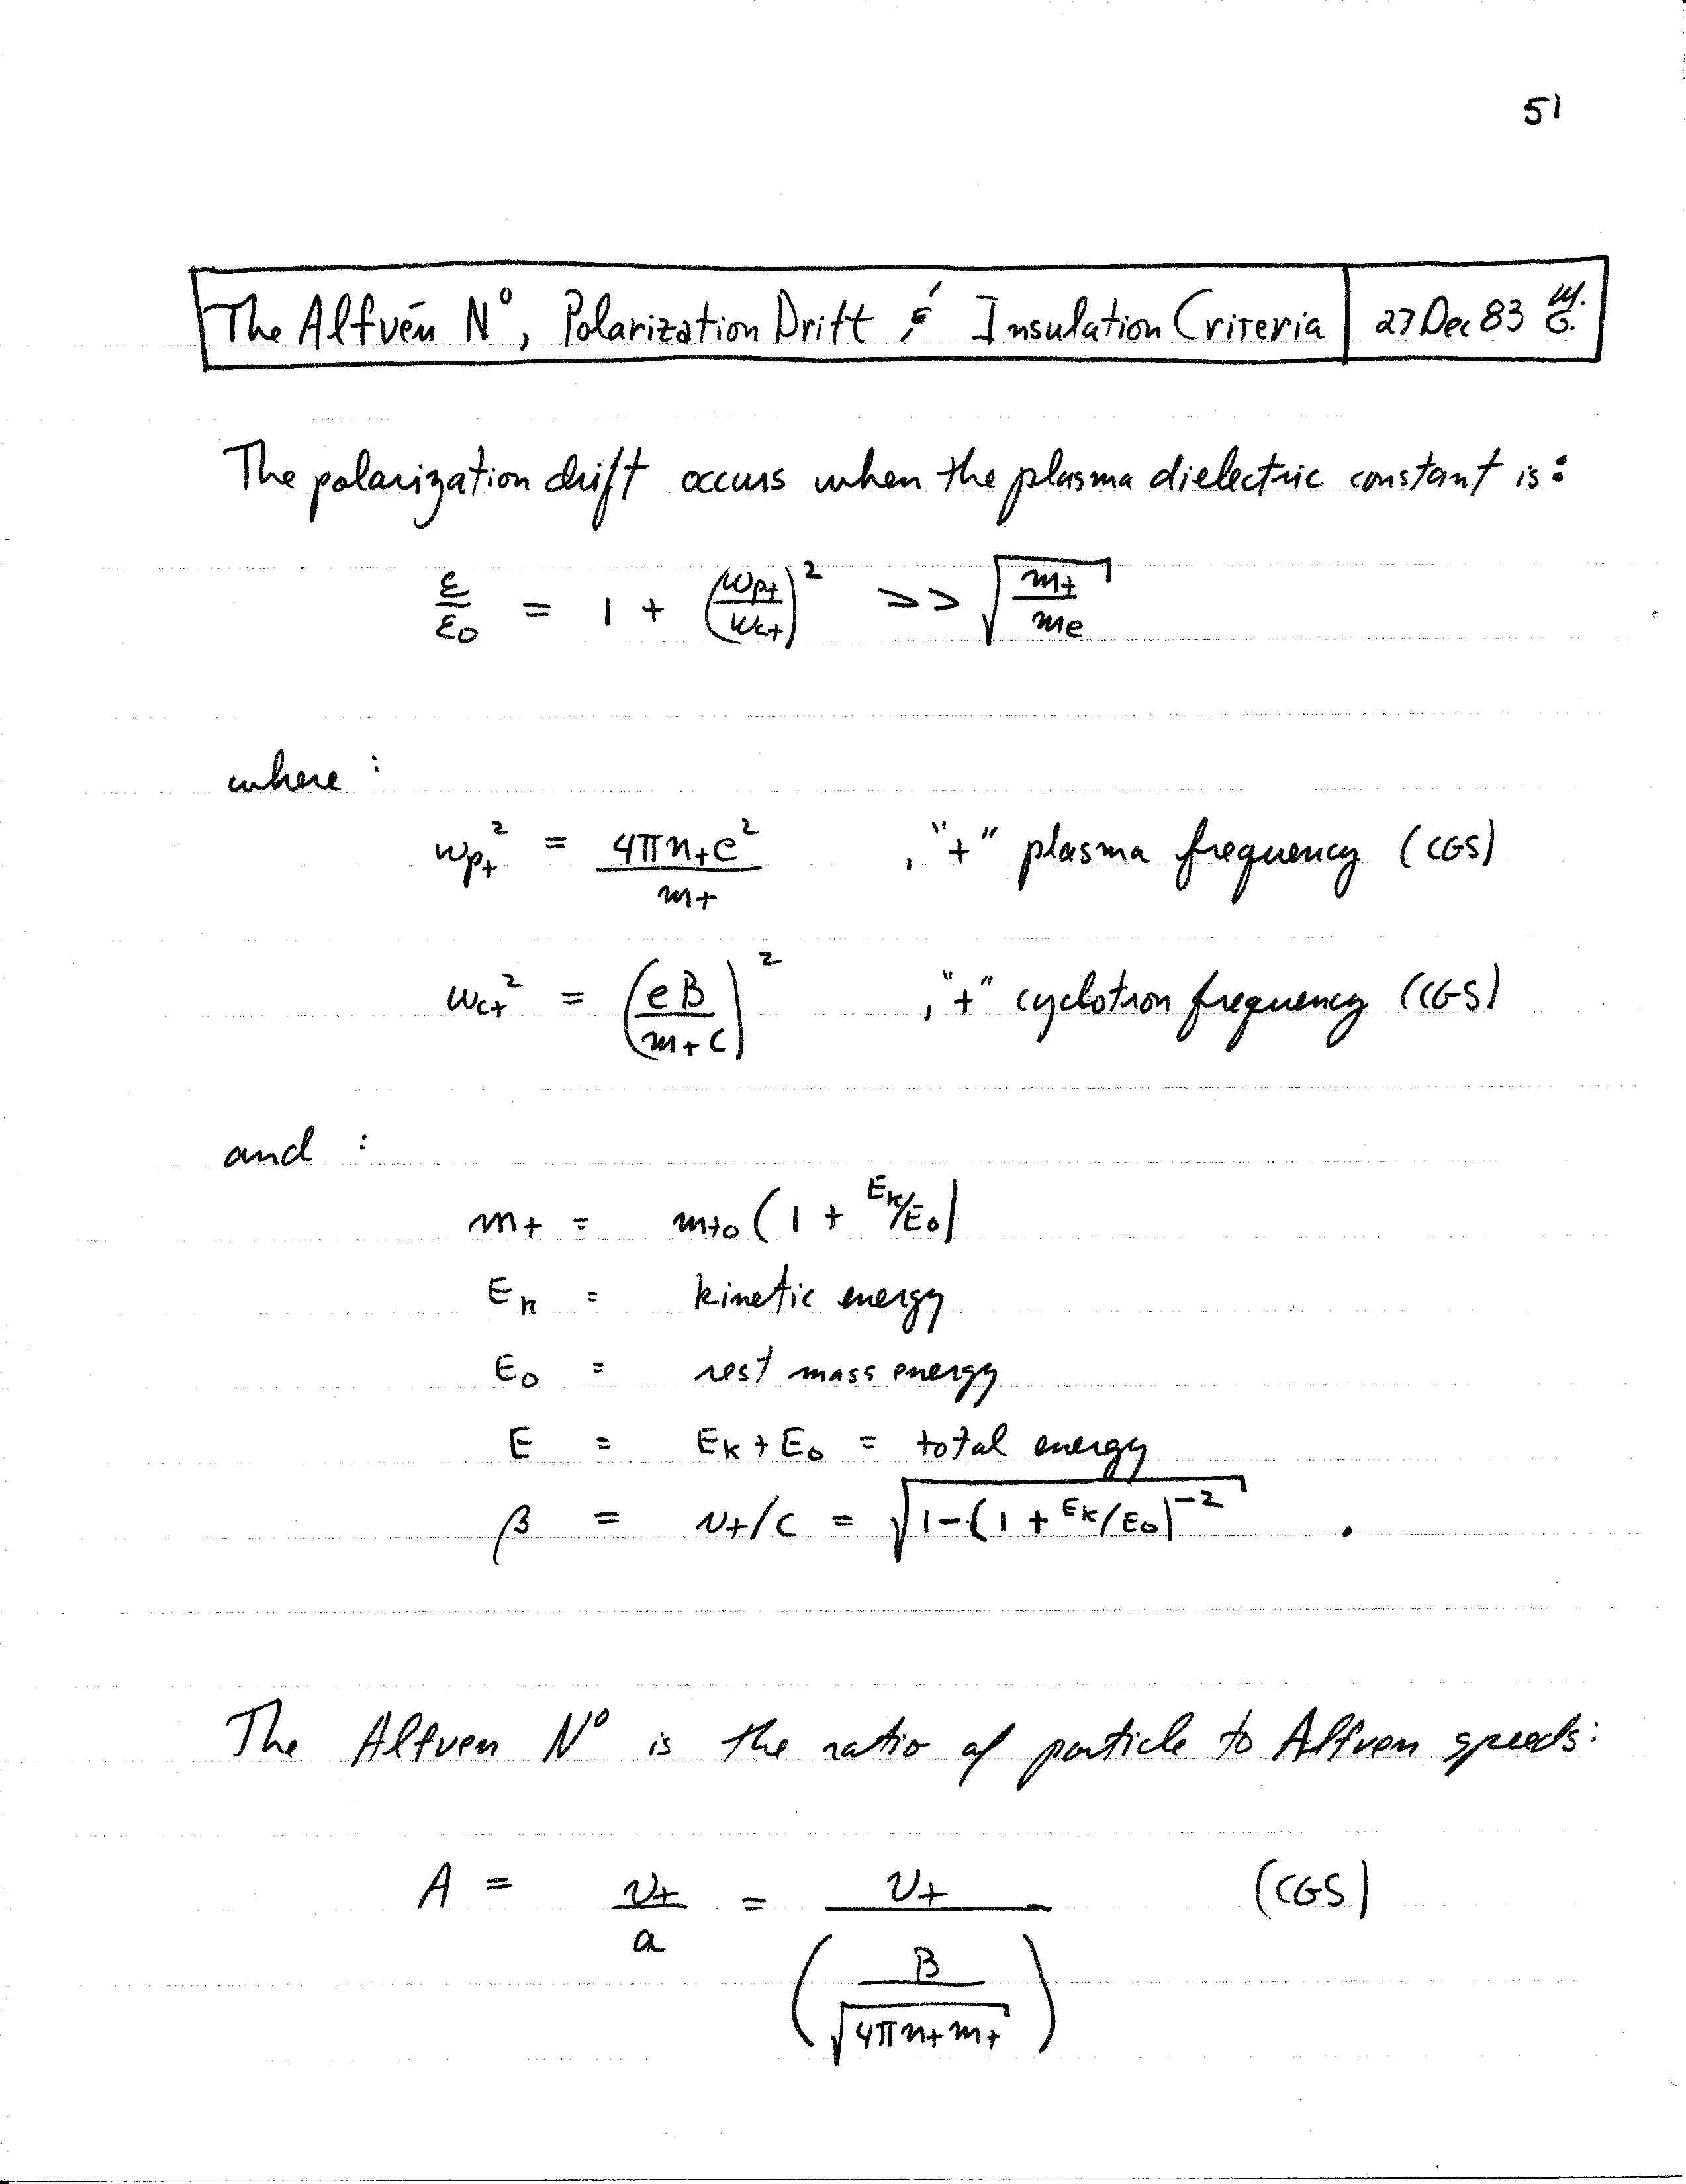 51
The Alfvén Nº, Polarization Drift & Insulation Criteria | 27 Dec 83 M.G.
The polarization drift occurs when the plasma dielectric constant is:
ε/ε₀ = 1 + (ωp+/ωc+)² >> √(m+/me)
where :
ωp+² = 4πn+e²/m+ , "+" plasma frequency (CGS)
ωc+² = (eB/m+c)² , "+" cyclotron frequency (CGS)
and :
m+ = m+o (1 + Ek/Eo)
Ek = kinetic energy
Eo = rest mass energy
E = Ek + Eo = total energy
β = v+/c = √(1-(1 + Ek/Eo)⁻²) .
The Alfven Nº is the ratio of particle to Alfven speeds:
A = v+/a = v+/(B/√(4πn+m+)) (CGS)